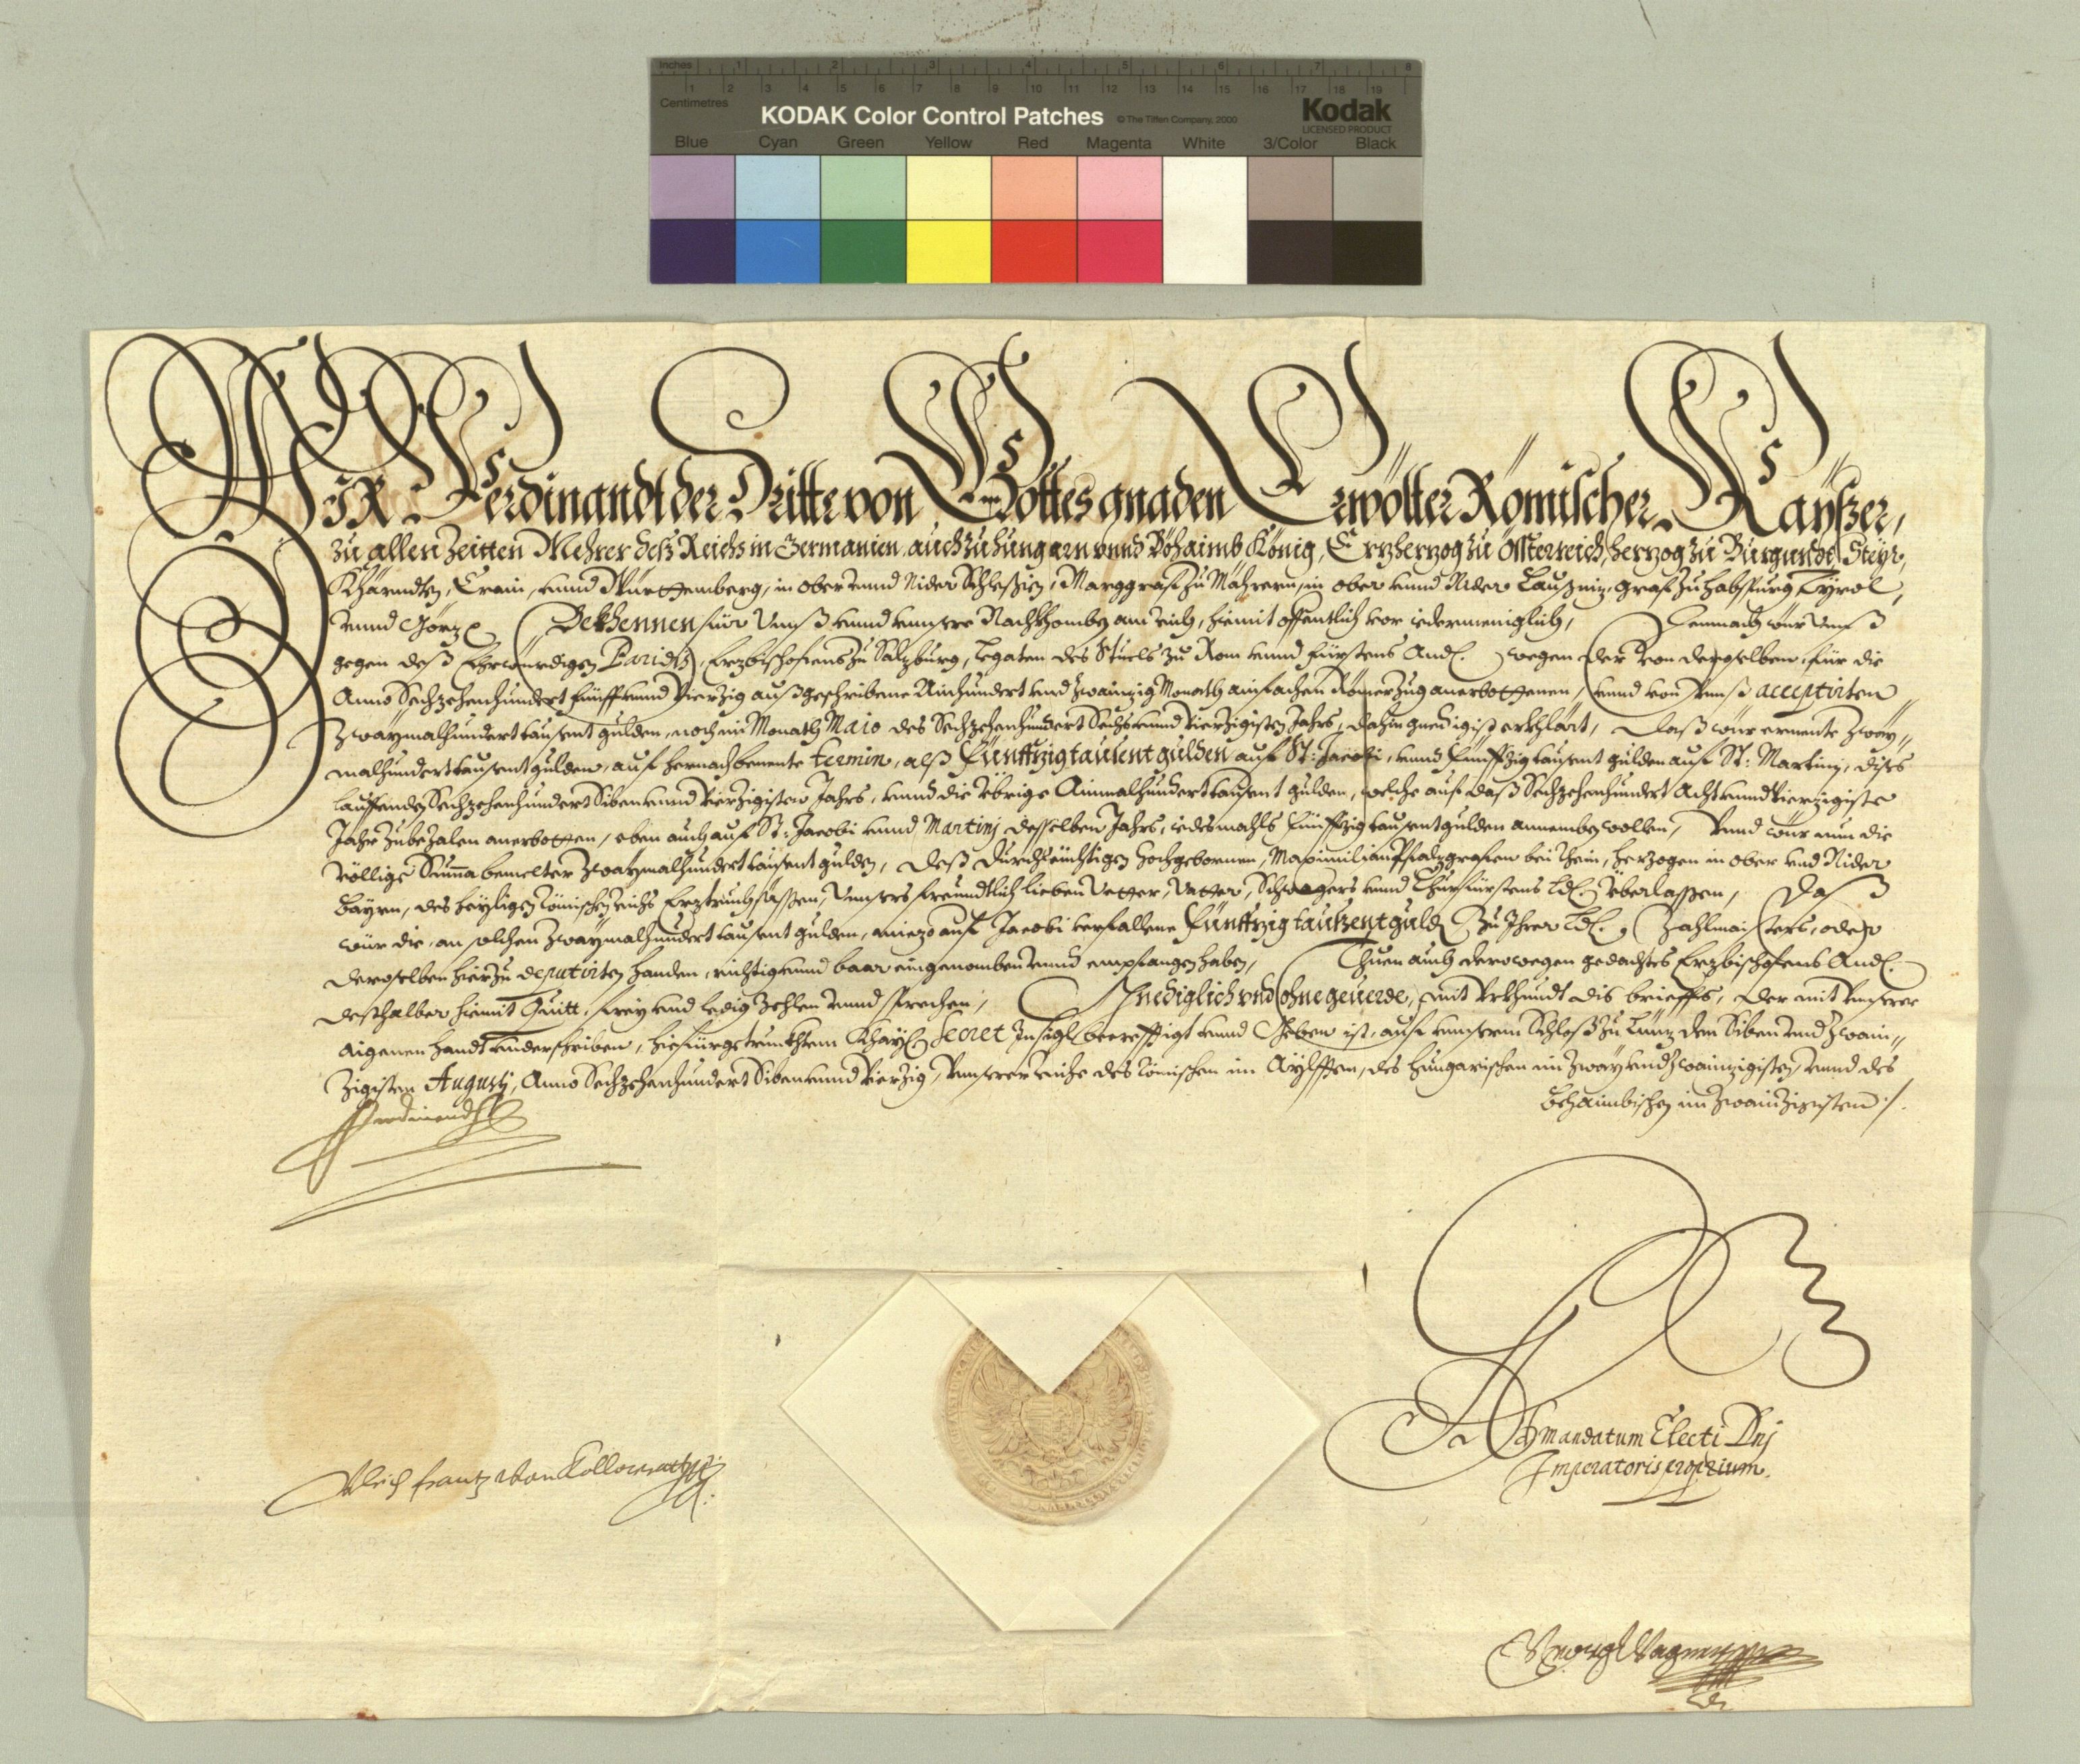 Inches 1 2 3 4 5 6 7 8
Centimetres 1 2 3 4 5 6 7 8 9 10 11 12 13 14 15 16 17 18 19
KODAK Color Control Patches © The Tiffen Company, 2000 Kodak
LICENSED PRODUCT
Blue Cyan Green Yellow Red Magenta White 3/Color Black
WIR Ferdinandt der Dritte von Gottes gnaden Erwölter Römischer Kaÿßer,
zu allen Zeitten Mehrer deß Reichs in Germanien, auch zu Hungarn vnnd Böhaimb König, Ertzherzog zu Össterreich, Herzog zu Burgundt, Steÿr,
Khärndten, Crain, vnnd Württemberg, in Ober vnnd Nider Schlesien, Marggraf zu Mährern, in Ober vnnd Nider Laußniz, Graf zu Habspurg, Tÿrol,
vnnd Görz Bekhennen für Vnnß vnnd vnnsere Nachkhomben am Reich, hiemit offentlich vor iedermeniglich, Demnach wür Vnnß
gegen deß Ehrwürdigen Paridis, Erzbischofens zu Salzburg, Legaten des Stuels zu Rom vnnd Fürstens And. wegen der von deroselben, für die
Anno Sechzehenhundert Fünff vnnd Vierzig außgeschribene Ainhundert vnd zwainzig Monath ainfachen Römerzug anerbottenen, vnnd von Vnnß acceptirten
Zwaÿmalhundert tausent gulden, noch im Monath Maio des Sechzehenhundert Sechs vnnd Vierzigisten Jahrs, dahin gnedigist erkhlärt, Daß wür ermente Zwaÿ-
malhundert tausent gulden, auf hernachbenente termin, alß Fünffzig tausent gulden auf St: Jacobi, vnnd Fünffzig tausent gulden auf St: Martinj, dises
lauffenden Sechzehenhundert Siben vnnd Vierzigisten Jahrs, vnnd die Übrige Ainmalhundert tausent gulden, welche auf daß Sechzehenhundert Acht vnnd Vierzigiste
Jahr zubezalen anerbotten, eben auch auf St: Jacobi vnnd Martinj desselben Jahrs, iedesmahls Fünffzig tausent gulden annemben wollen, Vnnd wür nun die
völlige Summa bemelter Zwaÿmalhundert tausent gulden, deß Durchleüchtigen Hochgebornen, Maximilian Pfalzgrafen bei Rhein, Herzogen in Ober vnd Nider
Baÿrn, des heÿligen Römischen Reichs Erztruchsässen, Vnnsers freundtlich lieben Vetter, Vatter, Schwagers vnnd Churfürstens Ld. Überlassen, Daß
wür die, an solchen Zwaÿmalhundert tausent gulden, aniezo auf Jacobi verfallene Fünffzig taußent guld. zu Ihrer Ld. Zahlmaisters, oder
deroselben hierzu deputirten handen, richtig vnnd baar eingenomben vnnd empfangen haben, Thuen auch derowegen gedachtes Erzbischofens And.
desthalber hiemit Quitt, freÿ vnd ledig zehlen vnnd sprechen, Gnediglich vnd ohne geuerde, mit Vrkhundt dis brieffs, der mit Vnnserer
aigenen handt vnderschriben, hiefürgetruckhtem Khaÿ. Secret Insigl becrefftigt vnnd Geben ist, auf vnnserm Schloß zu Linz den Siben vnd Zwain-
zigisten Augustj, Anno Sechzehenhundert Siben vnnd Vierzig, Vnnserer Reiche des Römischen im Aÿlfften, des Hungarischen im Zwaÿ vnd zwainzigisten, vnnd des
Behaimbischen im zwainzigisten /.
Ferdinandt
Ad mandatum Electi Dnj
Imperatoris proprium.
Vlrich Frantz von Kollowrath
Georg Wagner